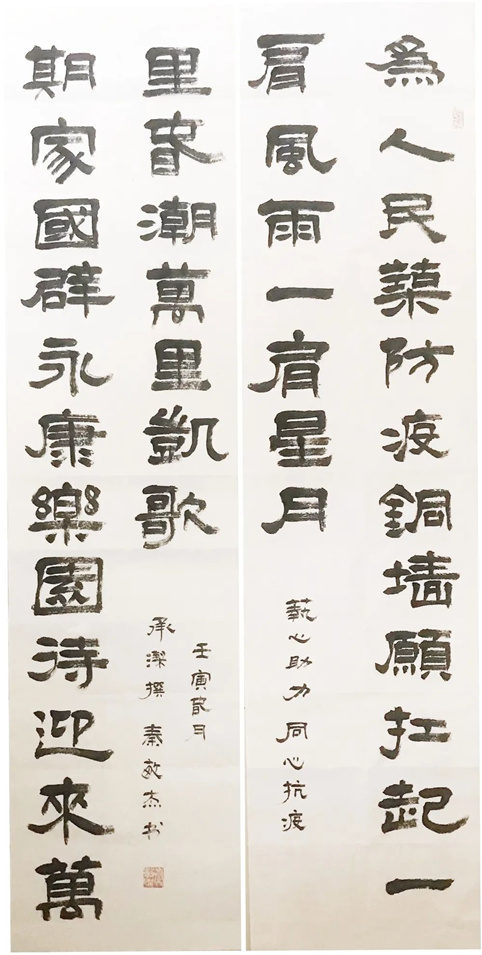 為人民築防疫銅墙願扛起一
肩風雨一肩星月
藝心助力同心抗疫
期家國辟永康樂園待迎來萬
里春潮萬里凱歌
壬寅春月
承潔撰 秦敏杰书